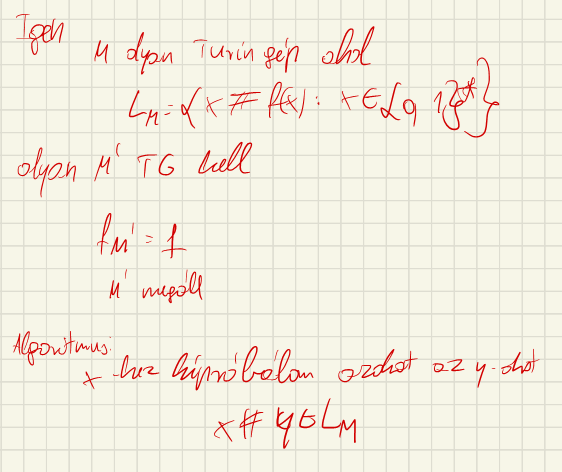 Igen
M olyan Turin gép ahol
L_M = { x # f(x) : x ∈ {0, 1}* }
olyan M' TG kell
f_M' = f
M' megáll
Algoritmus:
x-hez kipróbálom azokat az y-okat
x # y ∈ L_M